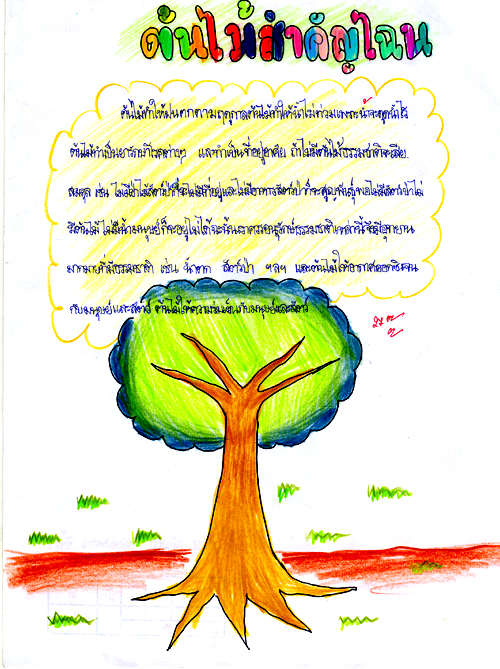 ต้นไม้สำคัญไฉน
ต้นไม้ทำให้ฝนตกตามฤดูกาลต้นไม้ทำให้น้ำไม่ท่วมเพราะน้ำจะดูดน้ำไว้
ต้นไม้ทำเป็นยารักษาโรคต่างๆ และทำเป็นที่อยู่อาศัย ถ้าไม่มีต้นไม้ธรรมชาติจะเสีย
สมดุล เช่น ไม่มีป่าไม้สัตว์ป่าก็จะไม่มีที่อยู่และไม่มีอาหารสัตว์ป่าก็จะสูญพันธุ์พอไม่มีสัตว์ป่าไม่
มีต้นไม้ ไม่มีน้ำมนุษย์ก็จะอยู่ไม่ได้ฉะนั้นเราควรอนุรักษ์ธรรมชาติเหล่านี้จึงมีอุทยาน
มากมายที่มีธรรมชาติ เช่น น้ำตก สัตว์ป่า ฯลฯ และต้นไม้ให้อากาศออกซิเจน
กับมนุษย์และสัตว์ ต้นไม้ให้ความร่มเย็นกับมนุษย์และสัตว์